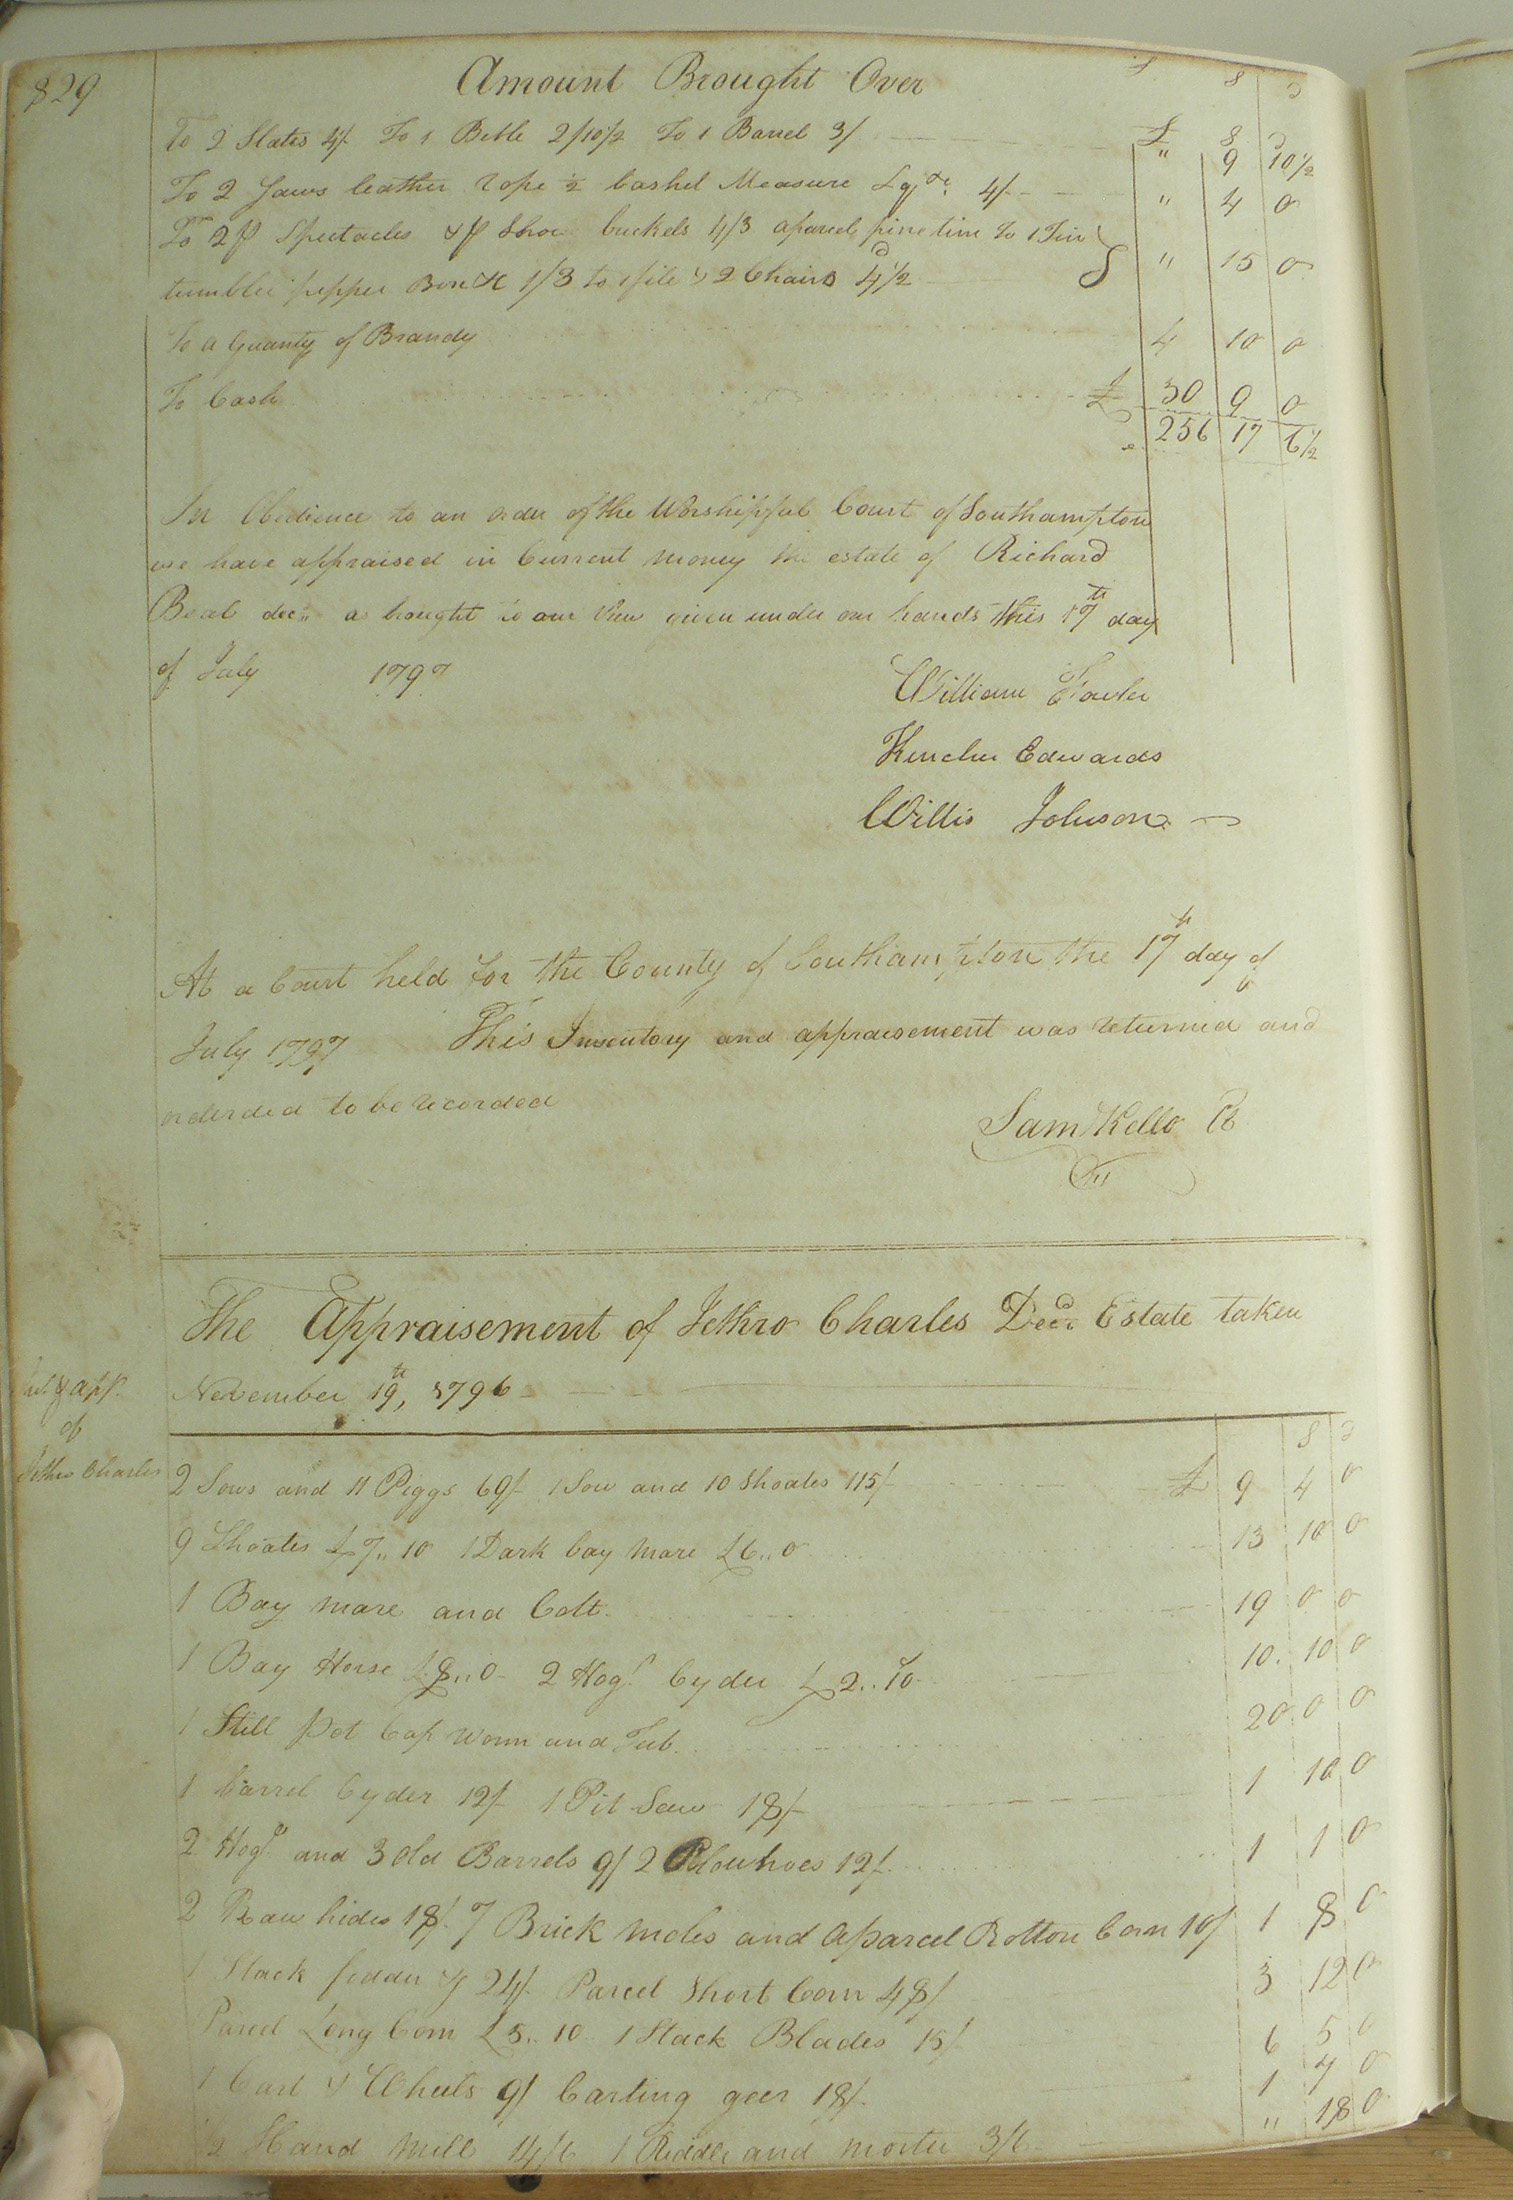 829 Amount Brought Over £ S D
To 2 Slates 4/. To 1 Bible 2/10½ To 1 Barrel 3/ £ " 9 10½
To 2 Jaws leather rope ½ bashel Measure 4/- " 4 0
To 2 pr Spectacles & pr Shoe buckels 4/3 aparcel pine tim To 1 Tin
tumbler pepper Box &c 1/3 to 1 file & 2 Chairs 4½ " 15 0
To a Quanty of Brandy 4 10 0
To Cash £ 30 9 0
256 17 6½
In Obedience to an order of the Worshipful Court of Southampton
we have appraised in Current money the estate of Richard
Beal dec. a bought to our View given under our hands this 17th day
of July 1797
William Fowler
Kinchen Edwards
Willis Johnson
At a Court held for the County of Southampton the 17th day of
July 1797 This Inventory and appraisement was returned and
orderded to be recorded
Sam Kello Cl
The Appraisement of Jethro Charles Decd. Estate taken
November 19th, 1796
& app.
of
Jethro Charles
S D
2 Sows and 11 Piggs 69/- 1 Sow and 10 Shoates 115/- £ 9 4 0
9 Shoates £7,, 10 1 Dark bay mare £6,, 0 13 10 0
1 Bay mare and Colt. 19 0 0
1 Bay Horse £8,, 0- 2 Hogs. Cyder £2,, 10 10. 10 0
1 Still pot Cap worm and Tub 20 0 0
1 barrel Cyder 12/- 1 Pit Saw 18/- 1 10 0
2 Hogs and 3 old Barrels 9/ 2 Plowhoes 12/. 1 1 0
2 Raw hides 18/. 7 Brick moles and aparcel Rotton Corn 10/ 1 8 0
1 Stack fodder 24/. Parcel Short Corn 48/ 3 12 0
Parcel Long Corn £5,, 10 1 Stack Blades 15/ 6 5 0
1 Cart & Wheels 9/ Carting geer 18/. 1 7 0
½ Hand Mill 14/6 1 Riddle and morter 3/6 " 18 0